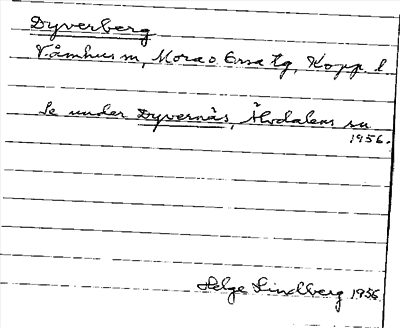 Dyverberg
Våmhus sn, Mora o Orsa tg, Kopp. l
Se under Dyvernäs, Älvdalens sn
1956.
Helge Lindberg 1956